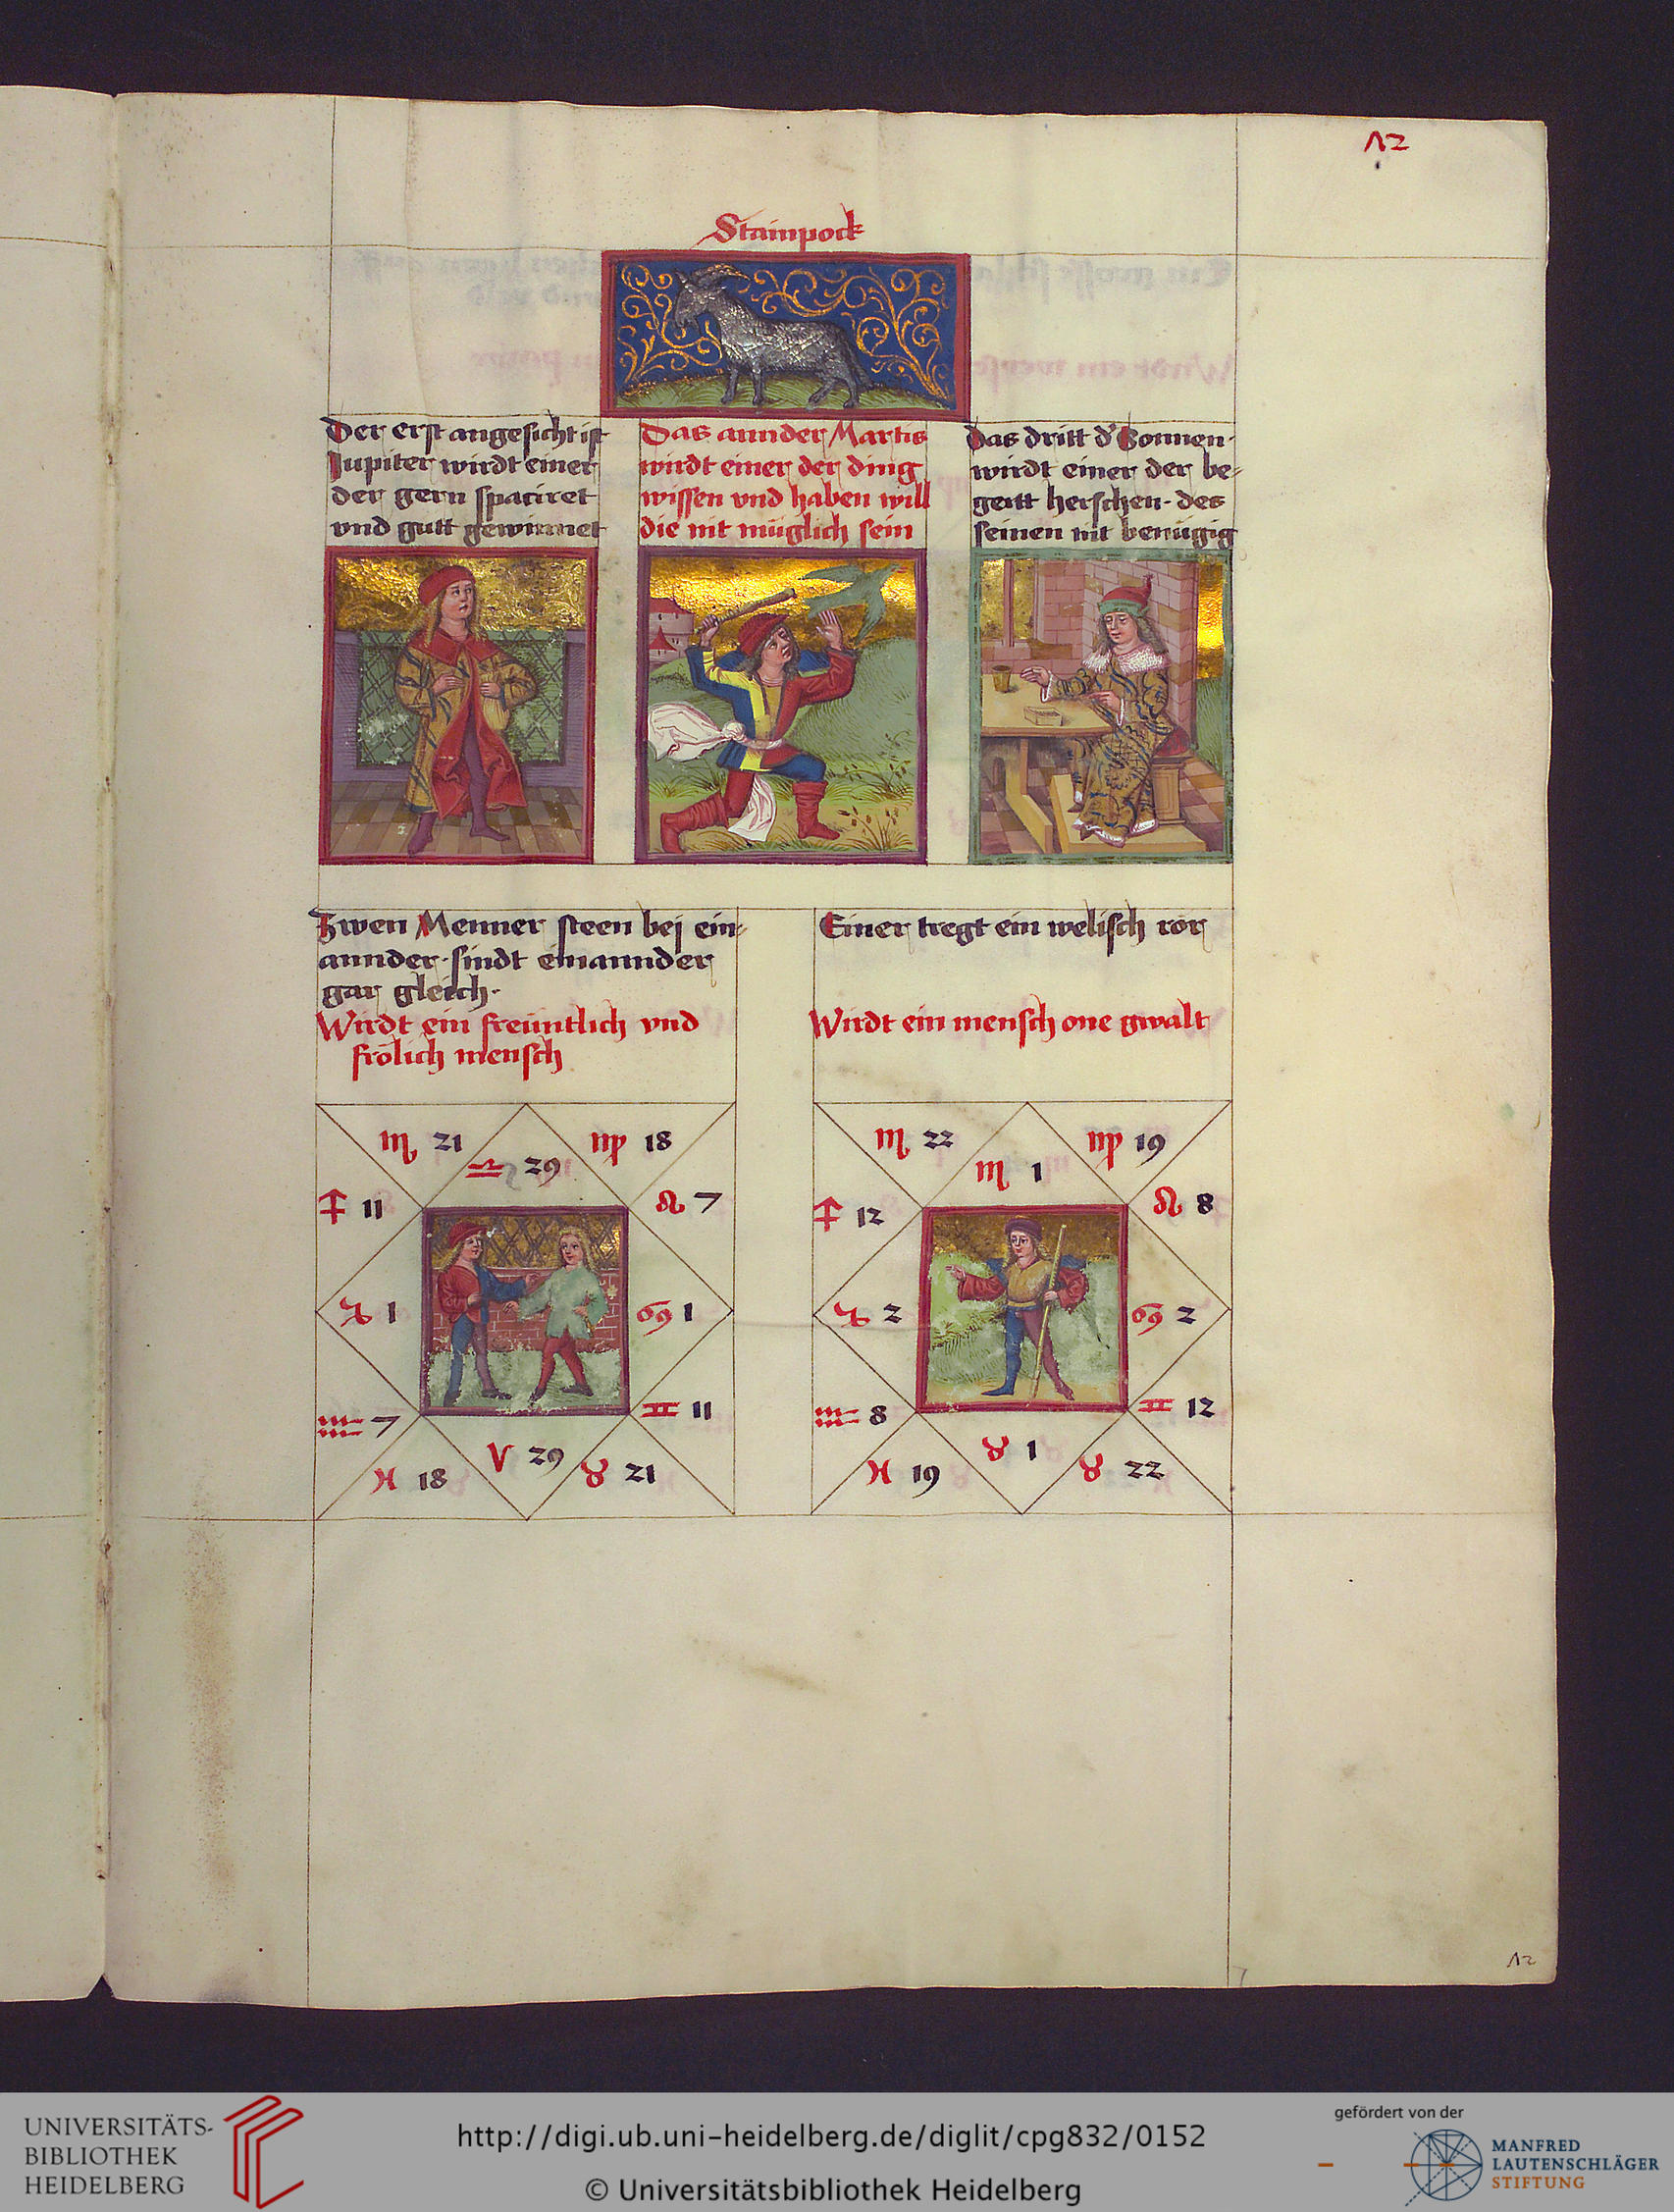 12
Stainpock
Der erst angesicht ist
Jupiter wirdt einer
der gern spaciret
vnd gutt gewinnet
Das annder Martis
wirdt einer der ding
wissen vnd haben will
die nit müglich sein
Das dritt d' Sonnen·
wirdt einer der be-
gertt herschen· des
seinen nit benügig
Zwen Menner steen bej ein-
annder· sindt einannder
gar gleich·
Wirdt ein freüntlich vnd
frölich mensch
Einer tregt ein welisch ror
Wirdt ein mensch one gwalt
♏ 21
♎ 29
♍ 18
♐ 11
♌ 7
♑ 1
♋ 1
♒ 7
♊ 11
♓ 18
♈ 29
♉ 21
♏ 22
♏ 1
♍ 19
♐ 12
♌ 8
♑ 2
♋ 2
♒ 8
♊ 12
♓ 19
♉ 1
♉ 22
12
UNIVERSITÄTS-
BIBLIOTHEK
HEIDELBERG
http://digi.ub.uni-heidelberg.de/diglit/cpg832/0152
© Universitätsbibliothek Heidelberg
gefördert von der
MANFRED
LAUTENSCHLÄGER
STIFTUNG